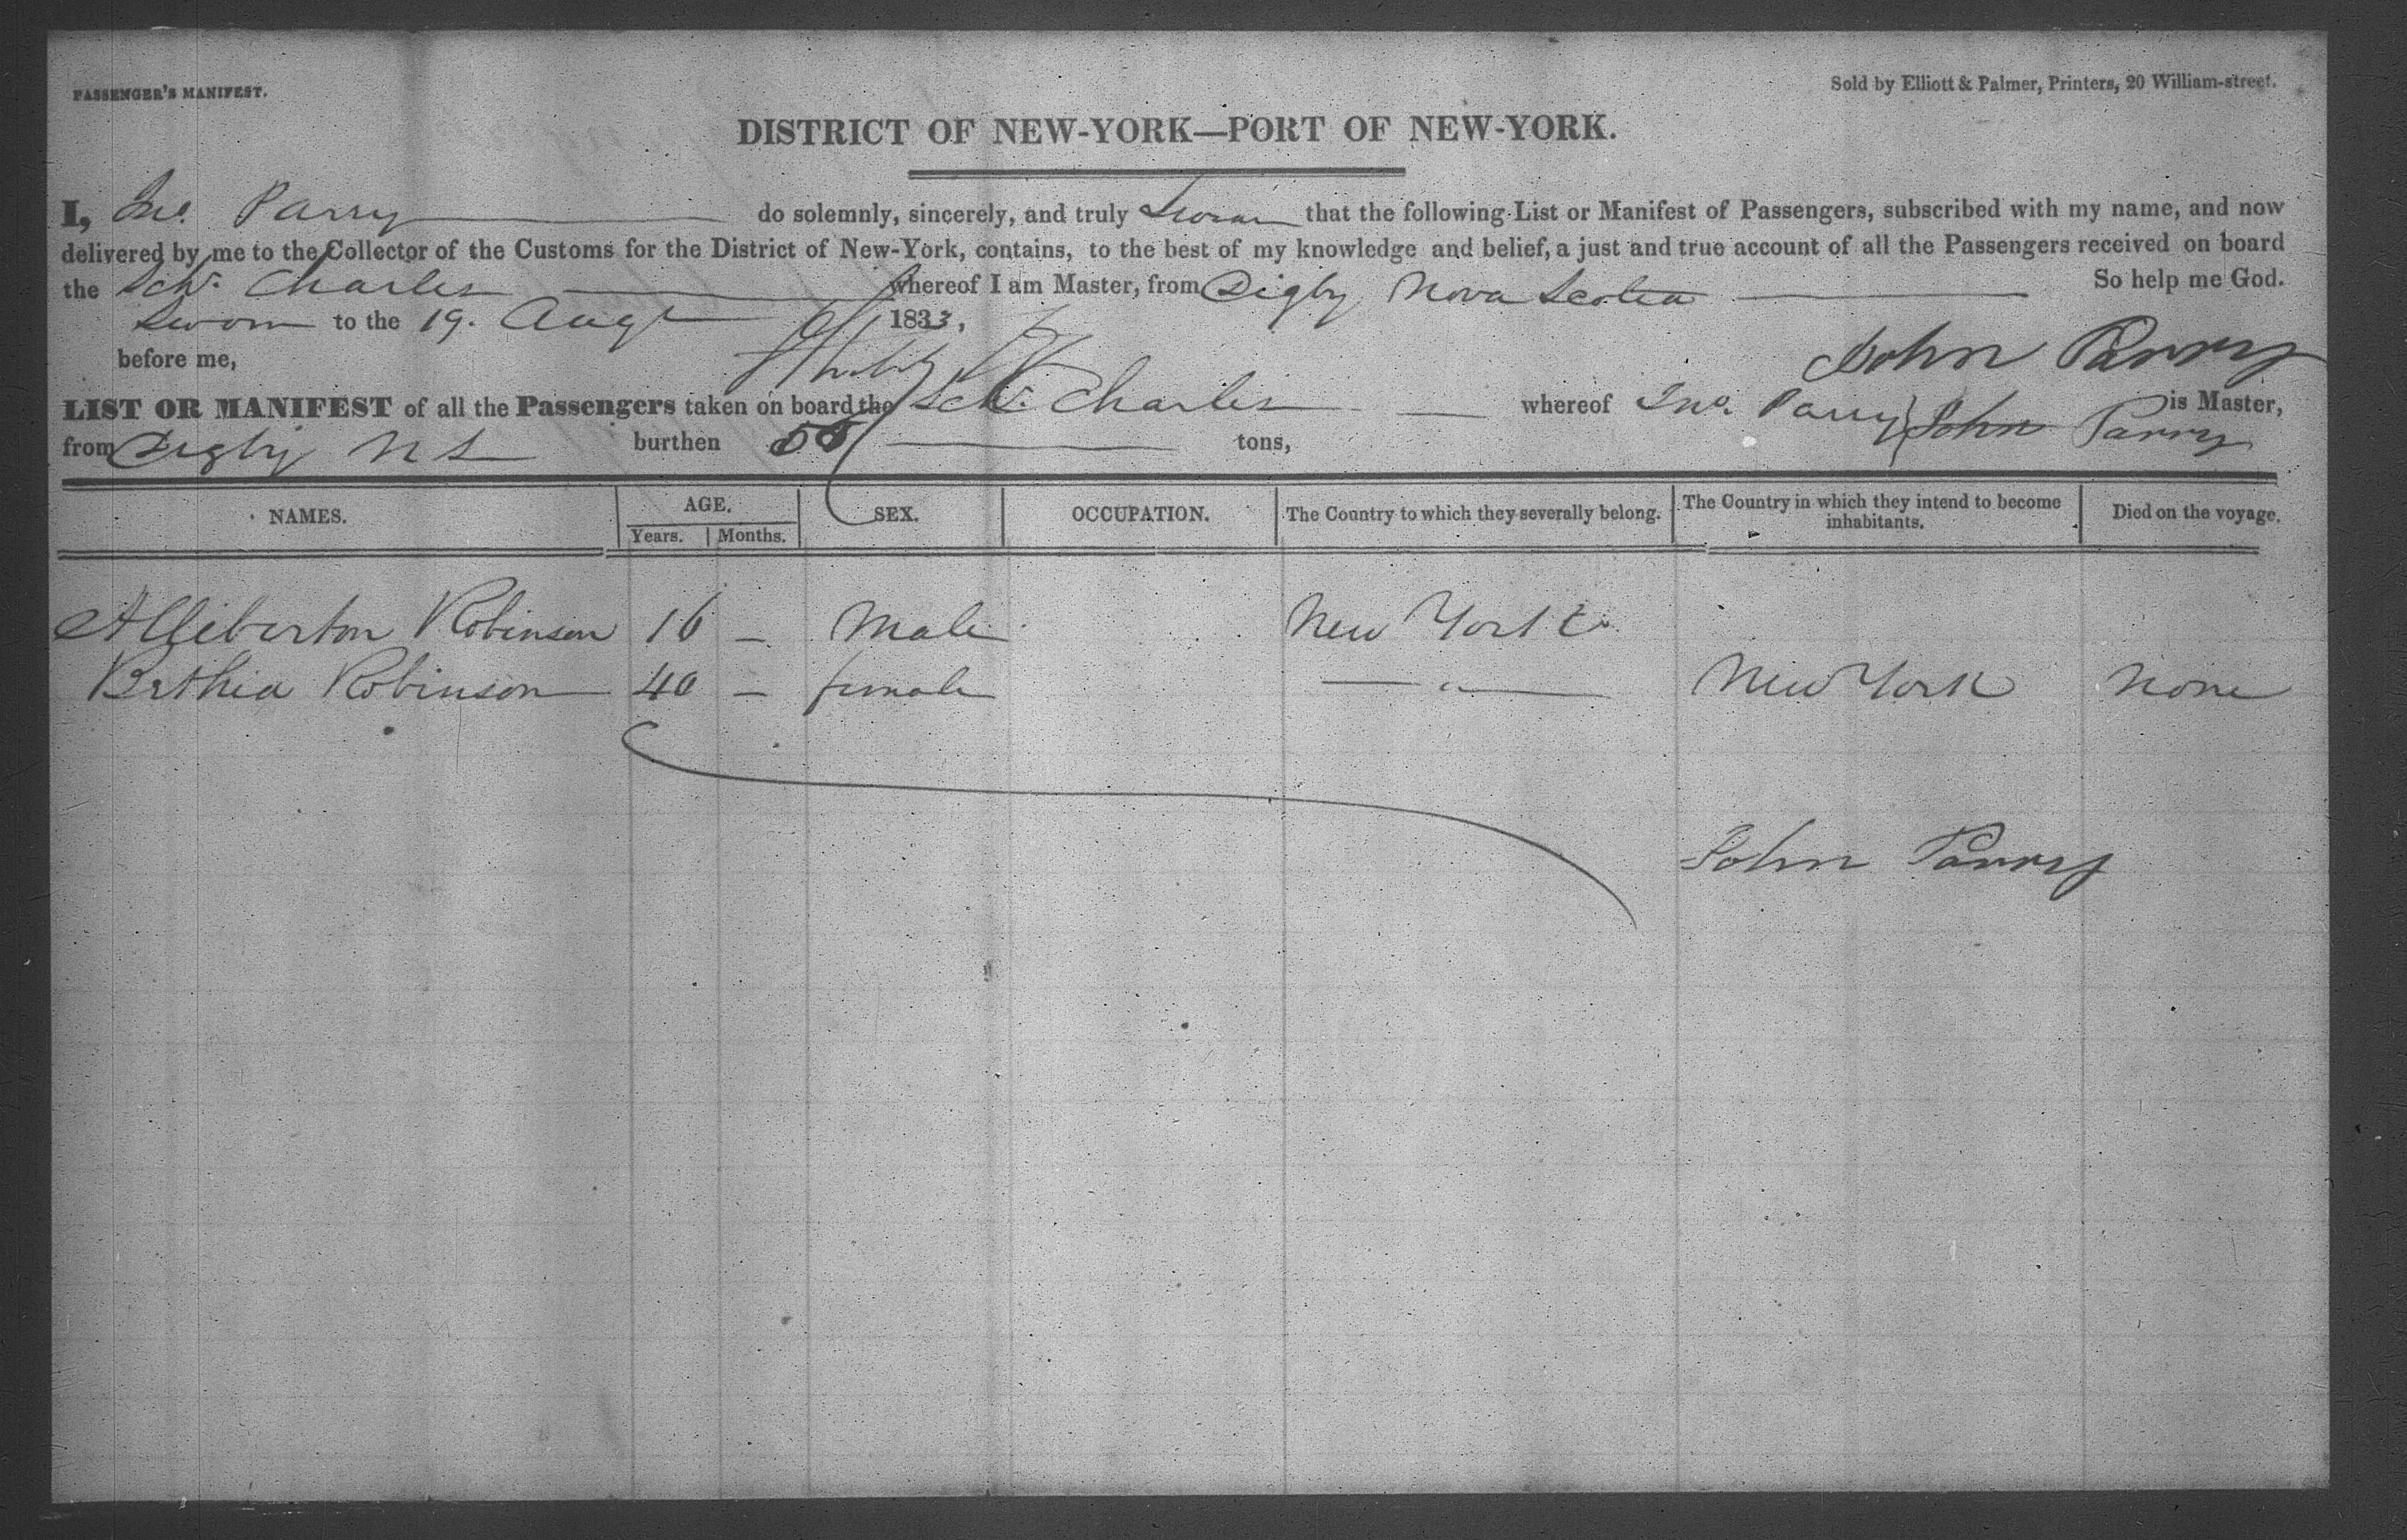 PASSENGER'S MANIFEST.
Sold by Elliott & Palmer, Printers, 20 William-street.
DISTRICT OF NEW-YORK—PORT OF NEW-YORK.
I, Jno. Parry do solemnly, sincerely, and truly Swear that the following List or Manifest of Passengers, subscribed with my name, and now
delivered by me to the Collector of the Customs for the District of New-York, contains, to the best of my knowledge and belief, a just and true account of all the Passengers received on board
the Schr. Charles whereof I am Master, from Digby Nova Scotia So help me God.
Sworn to the 19. Augt 1833,
before me,
John Parry
LIST OR MANIFEST of all the Passengers taken on board the Schr. Charles whereof Jno. Parry John Parry is Master,
from Digby N S burthen 55 tons,
NAMES. AGE. SEX. OCCUPATION. The Country to which they severally belong. The Country in which they intend to become inhabitants. Died on the voyage.
Years. Months.
Robinson 16 — Male New York
Bethia Robinson 40 — female — " — New York None
John Parry